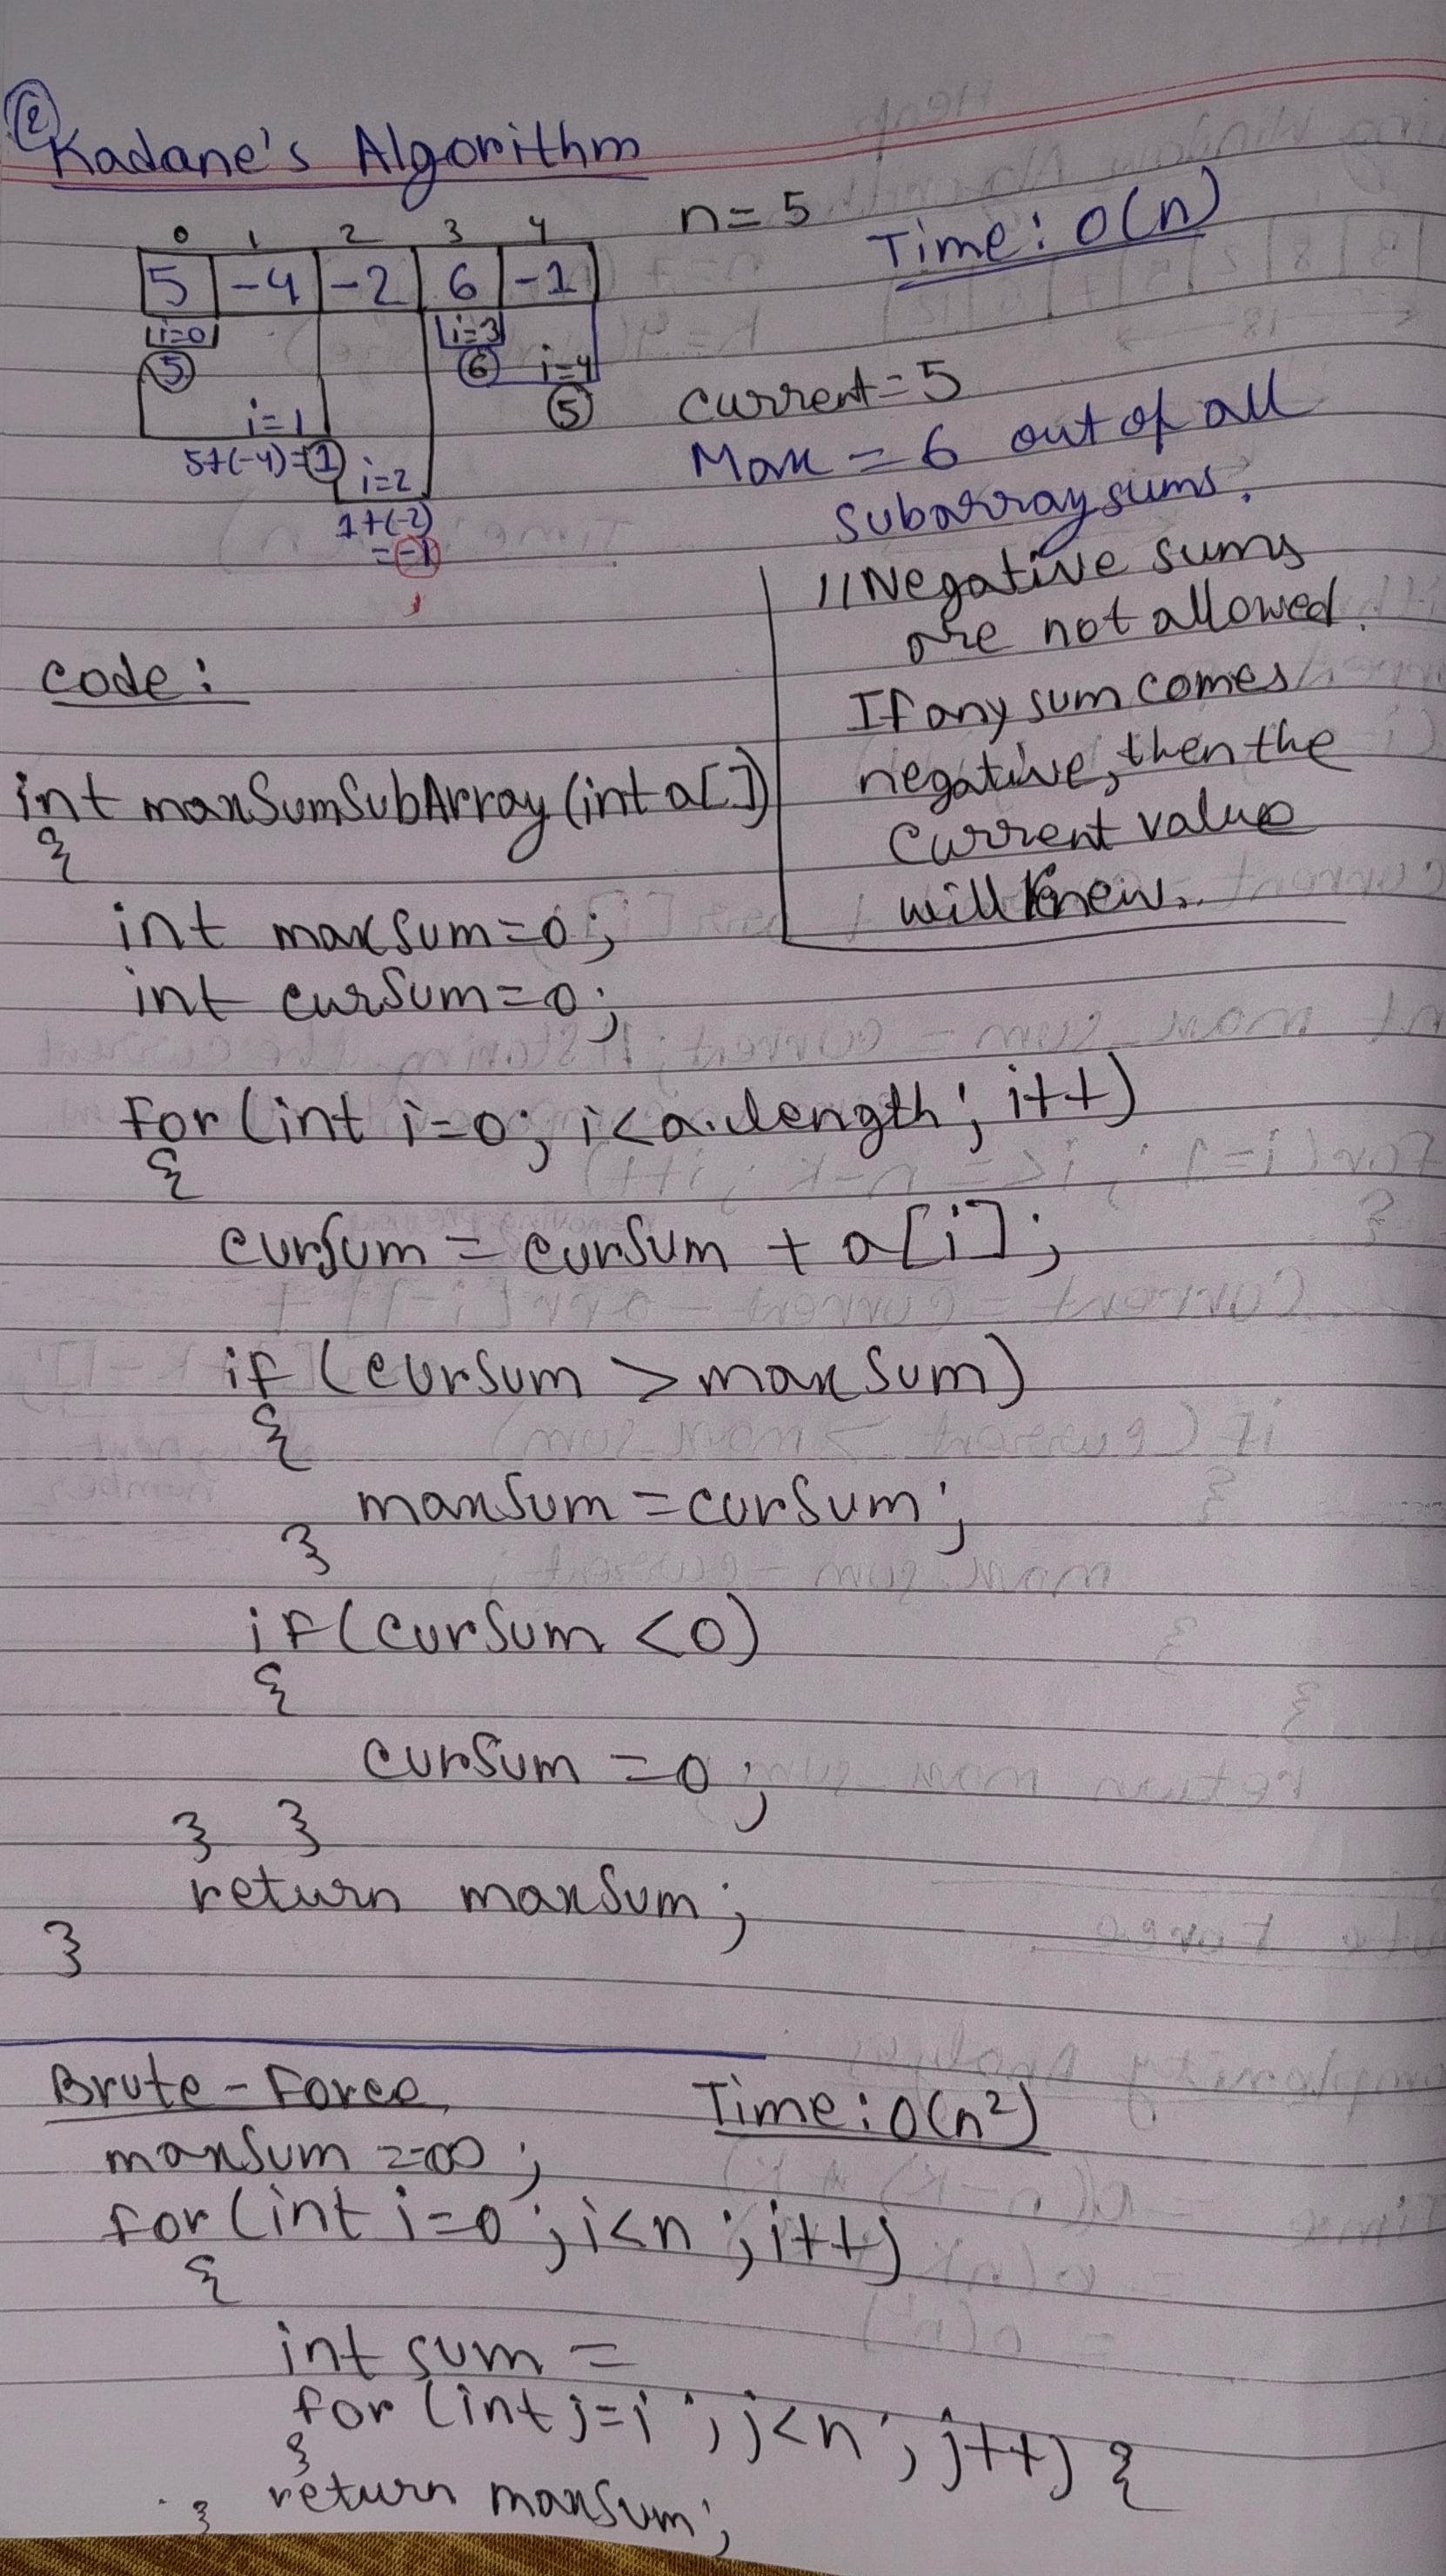 2
Kadane's Algorithm
n=5
Time: O(n)
0 1 2 3 4
5 -4 -2 6 -1
i=0 i=3
5 6 i=4
5
i=1
5+(-4)=1
i=2
1+(-2)
=-1
Current=5
Max=6 out of all
Subarray sums.
//Negative sums
are not allowed.
If any sum comes
negative, then the
Current value
will
code:
int maxSumSubArray(int a[])
{
int maxSum=0;
int curSum=0;
for(int i=0; i<a.length; i++)
{
curSum = curSum + a[i];
if (curSum > maxSum)
{
maxSum = curSum;
}
if(curSum <0)
{
curSum =0;
} }
return maxSum;
}
Brute-Force
Time: O(n²)
maxSum =-∞;
for(int i=0; i<n; i++)
{
int sum =
for (int j=i; j<n; j++) {
}
return maxSum;
}